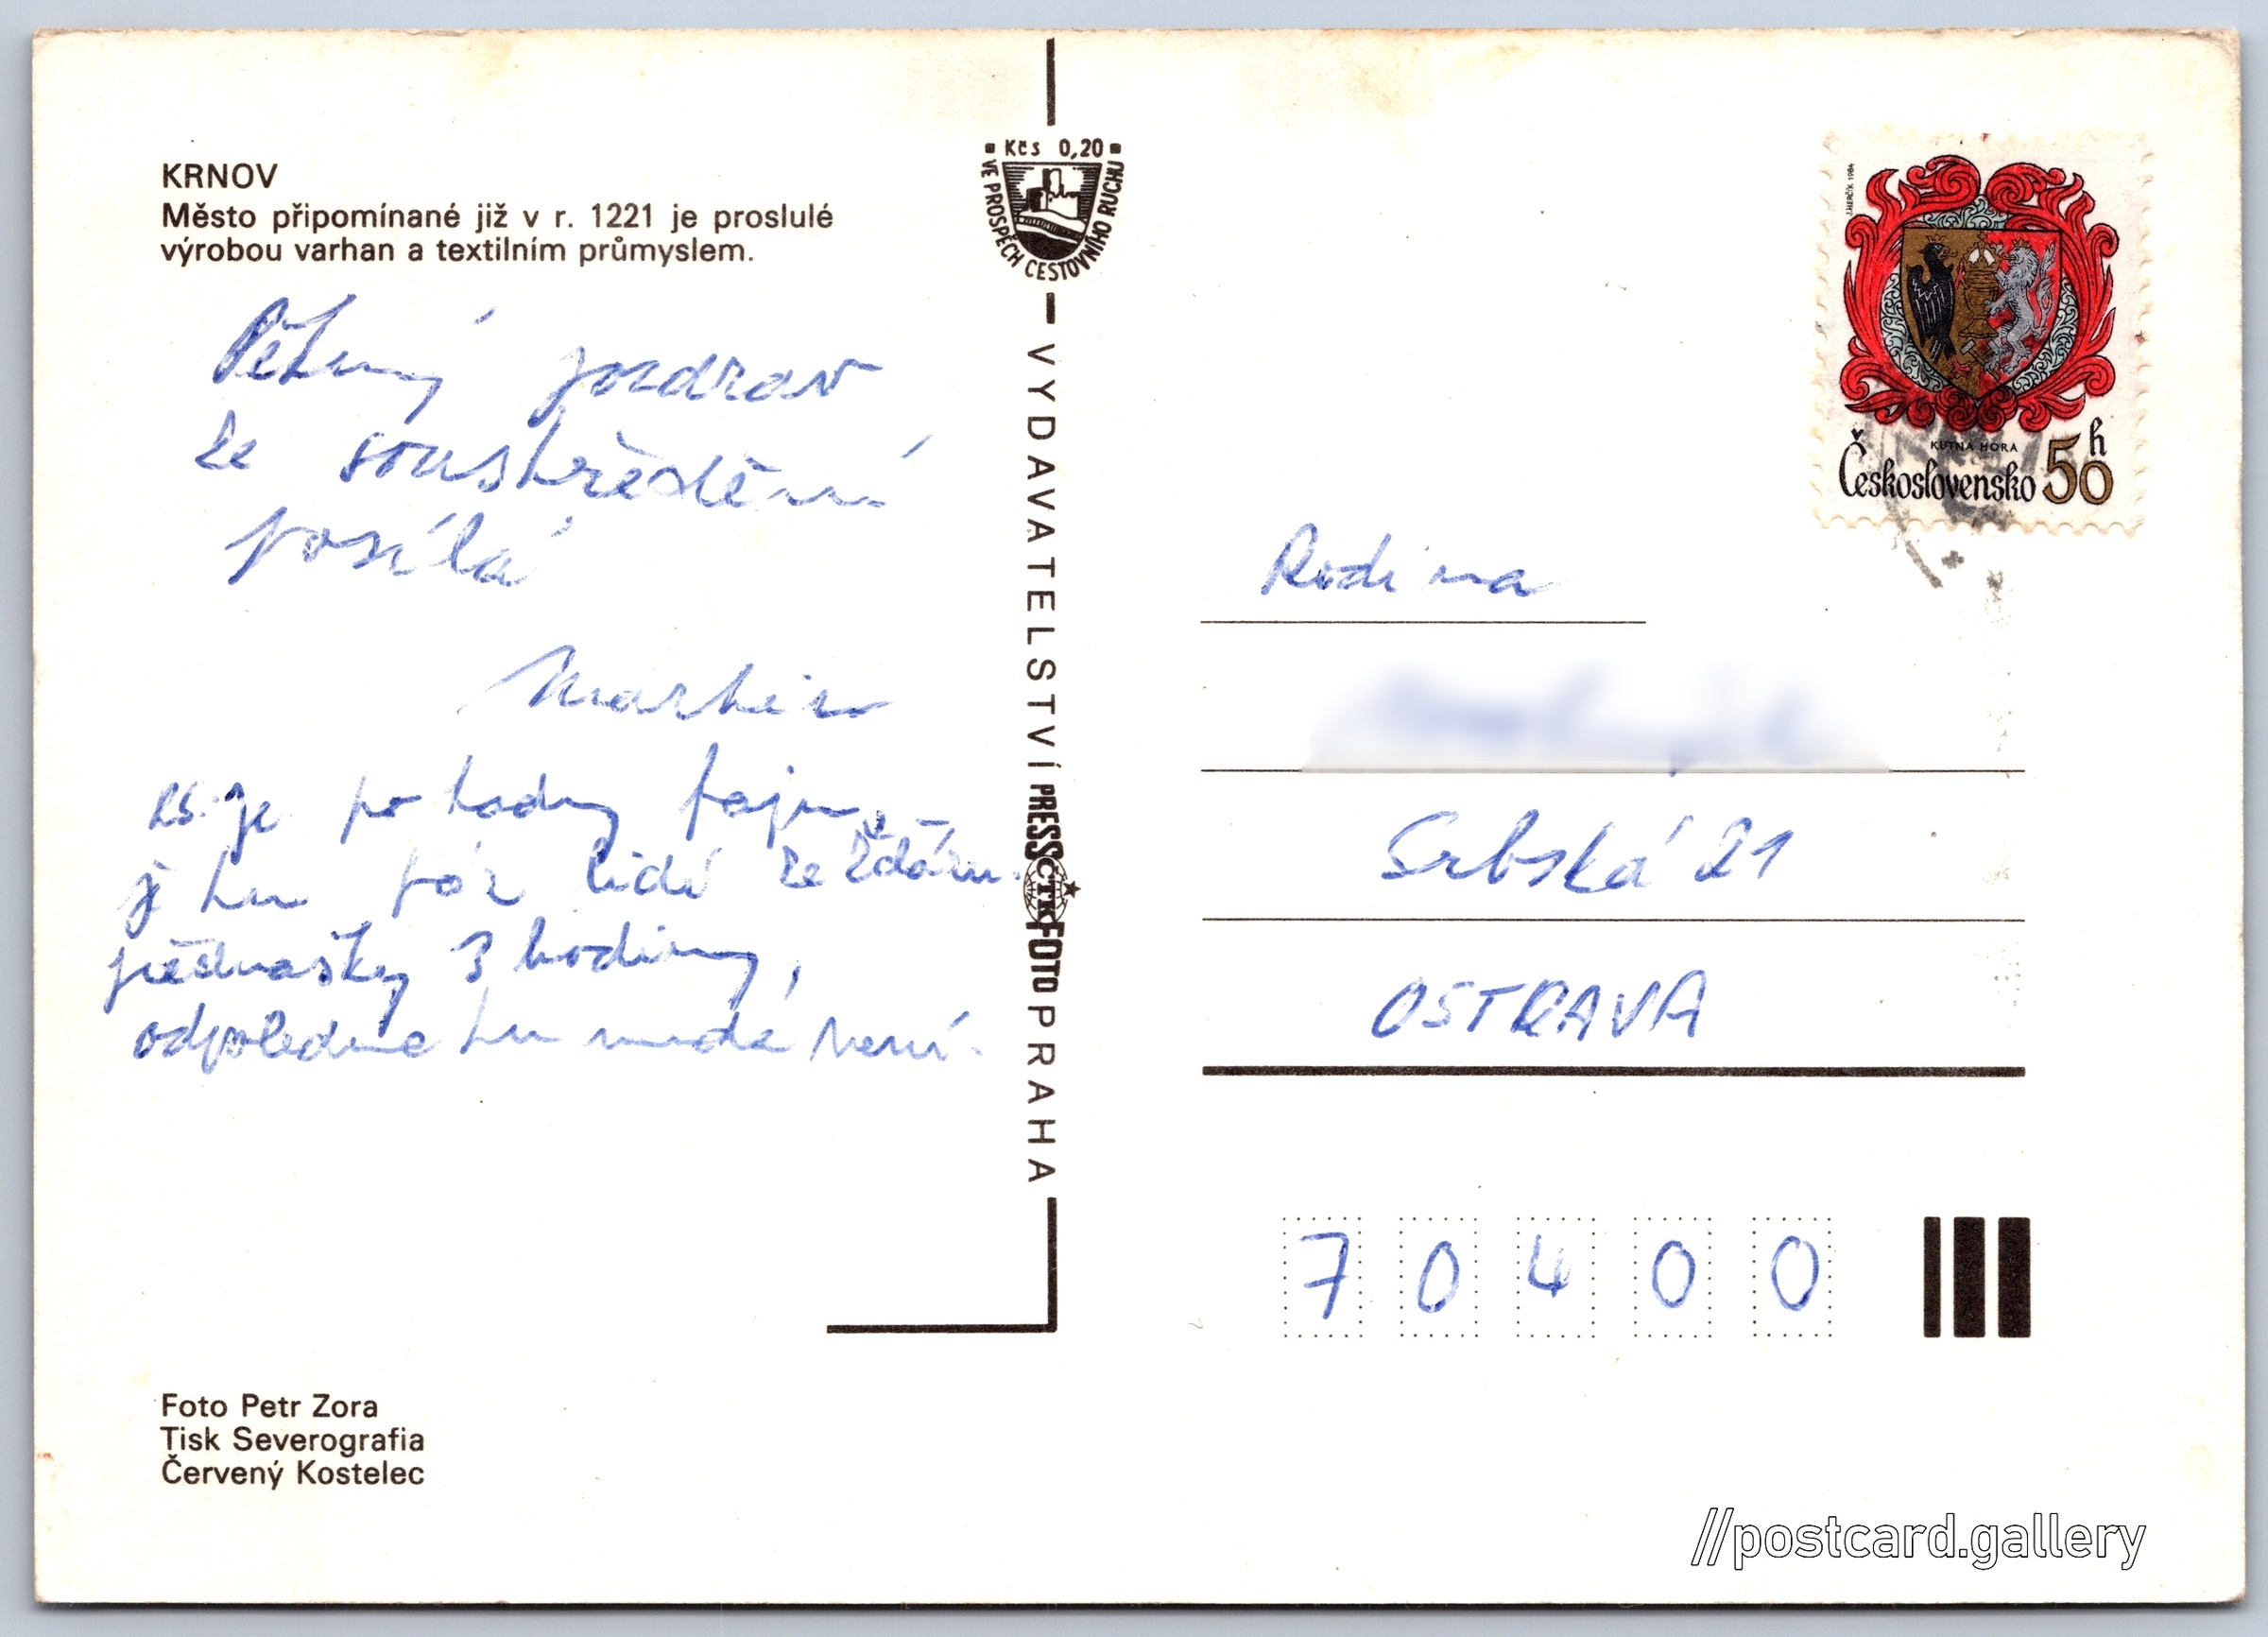 KRNOV
Město připomínané již v r. 1221 je proslulé
výrobou varhan a textilním průmyslem.
Pěkný pozdrav
ze soustředění
posílá
Martin
PS: Je po hodny fajn,
je tu pár lidí ze Žďáru.
přednášky 3 hodiny,
odpoledne tu nuda není.
Kčs 0,20
VE PROSPĚCH CESTOVNÍHO RUCHU
VYDAVATELSTVÍ PRESSFOTO PRAHA
ČTK
J. HERČÍK 1984
KUTNÁ HORA
Československo 50 h
Rodina
Srbská 21
OSTRAVA
70400
Foto Petr Zora
Tisk Severografia
Červený Kostelec
//postcard.gallery